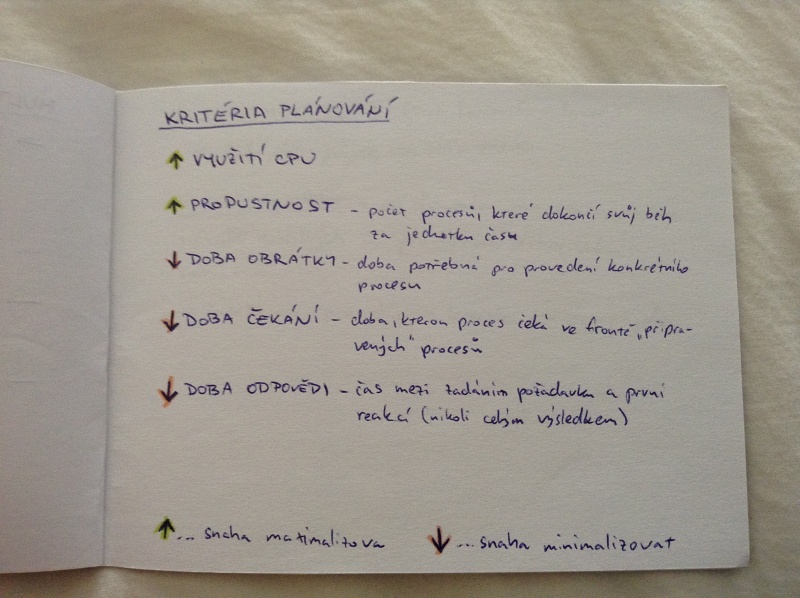 KRITÉRIA PLÁNOVÁNÍ
↑ VYUŽITÍ CPU
↑ PROPUSTNOST - počet procesů, které dokončí svůj běh
za jednotku času
↓ DOBA OBRÁTKY - doba potřebná pro provedení konkrétního
procesu
↓ DOBA ČEKÁNÍ - doba, kterou proces čeká ve frontě „připra-
vených" procesů
↓ DOBA ODPOVĚDI - čas mezi zadáním požadavku a první
reakcí (nikoli celým výsledkem)
↑ ... snaha maximalizova
↓ ... snaha minimalizovat